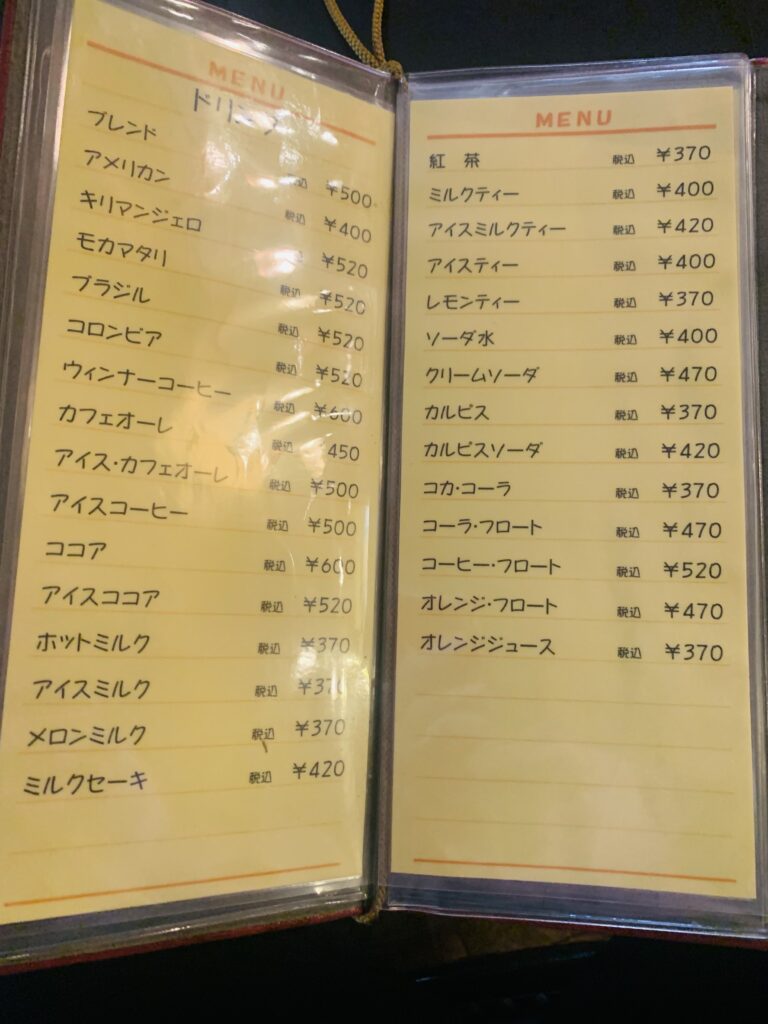 MENU
ドリンク
ブレンド 税込 ¥500
アメリカン 税込 ¥400
キリマンジェロ 税込 ¥520
モカマタリ 税込 ¥520
ブラジル 税込 ¥520
コロンビア 税込 ¥520
ウィンナーコーヒー 税込 ¥600
カフェオーレ 450
アイス・カフェオーレ 税込 ¥500
アイスコーヒー 税込 ¥500
ココア 税込 ¥600
アイスココア 税込 ¥520
ホットミルク 税込 ¥370
アイスミルク 税込 ¥370
メロンミルク 税込 ¥370
ミルクセーキ 税込 ¥420
MENU
紅 茶 税込 ¥370
ミルクティー 税込 ¥400
アイスミルクティー 税込 ¥420
アイスティー 税込 ¥400
レモンティー 税込 ¥370
ソーダ水 税込 ¥400
クリームソーダ 税込 ¥470
カルピス 税込 ¥370
カルピスソーダ 税込 ¥420
コカ・コーラ 税込 ¥370
コーラ・フロート 税込 ¥470
コーヒー・フロート 税込 ¥520
オレンジ・フロート 税込 ¥470
オレンジジュース 税込 ¥370